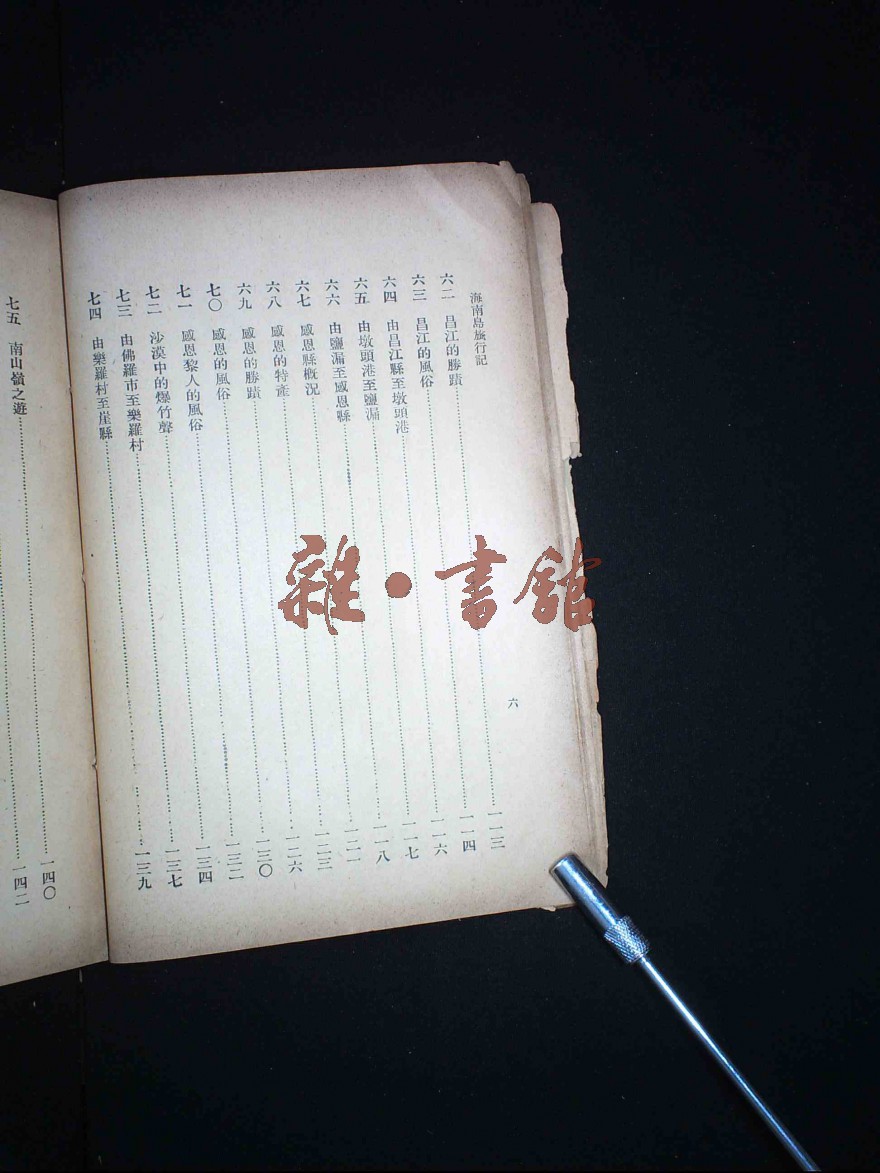 海南島旅行記
六
六二 昌江的勝蹟……一一三
六三 昌江的風俗……一一四
六四 由昌江縣至墩頭港……一一六
六五 由墩頭港至鹽漏……一一七
六六 由鹽漏至感恩縣……一一八
六七 感恩縣概況……一二一
六八 感恩的特產……一二三
六九 感恩的勝蹟……一二六
七〇 感恩的風俗……一三〇
七一 感恩黎人的風俗……一三二
七二 沙漠中的爆竹聲……一三四
七三 由佛羅市至樂羅村……一三七
七四 由樂羅村至崖縣……一三九
七五 南山嶺之遊……一四〇
一四二
雜·書館